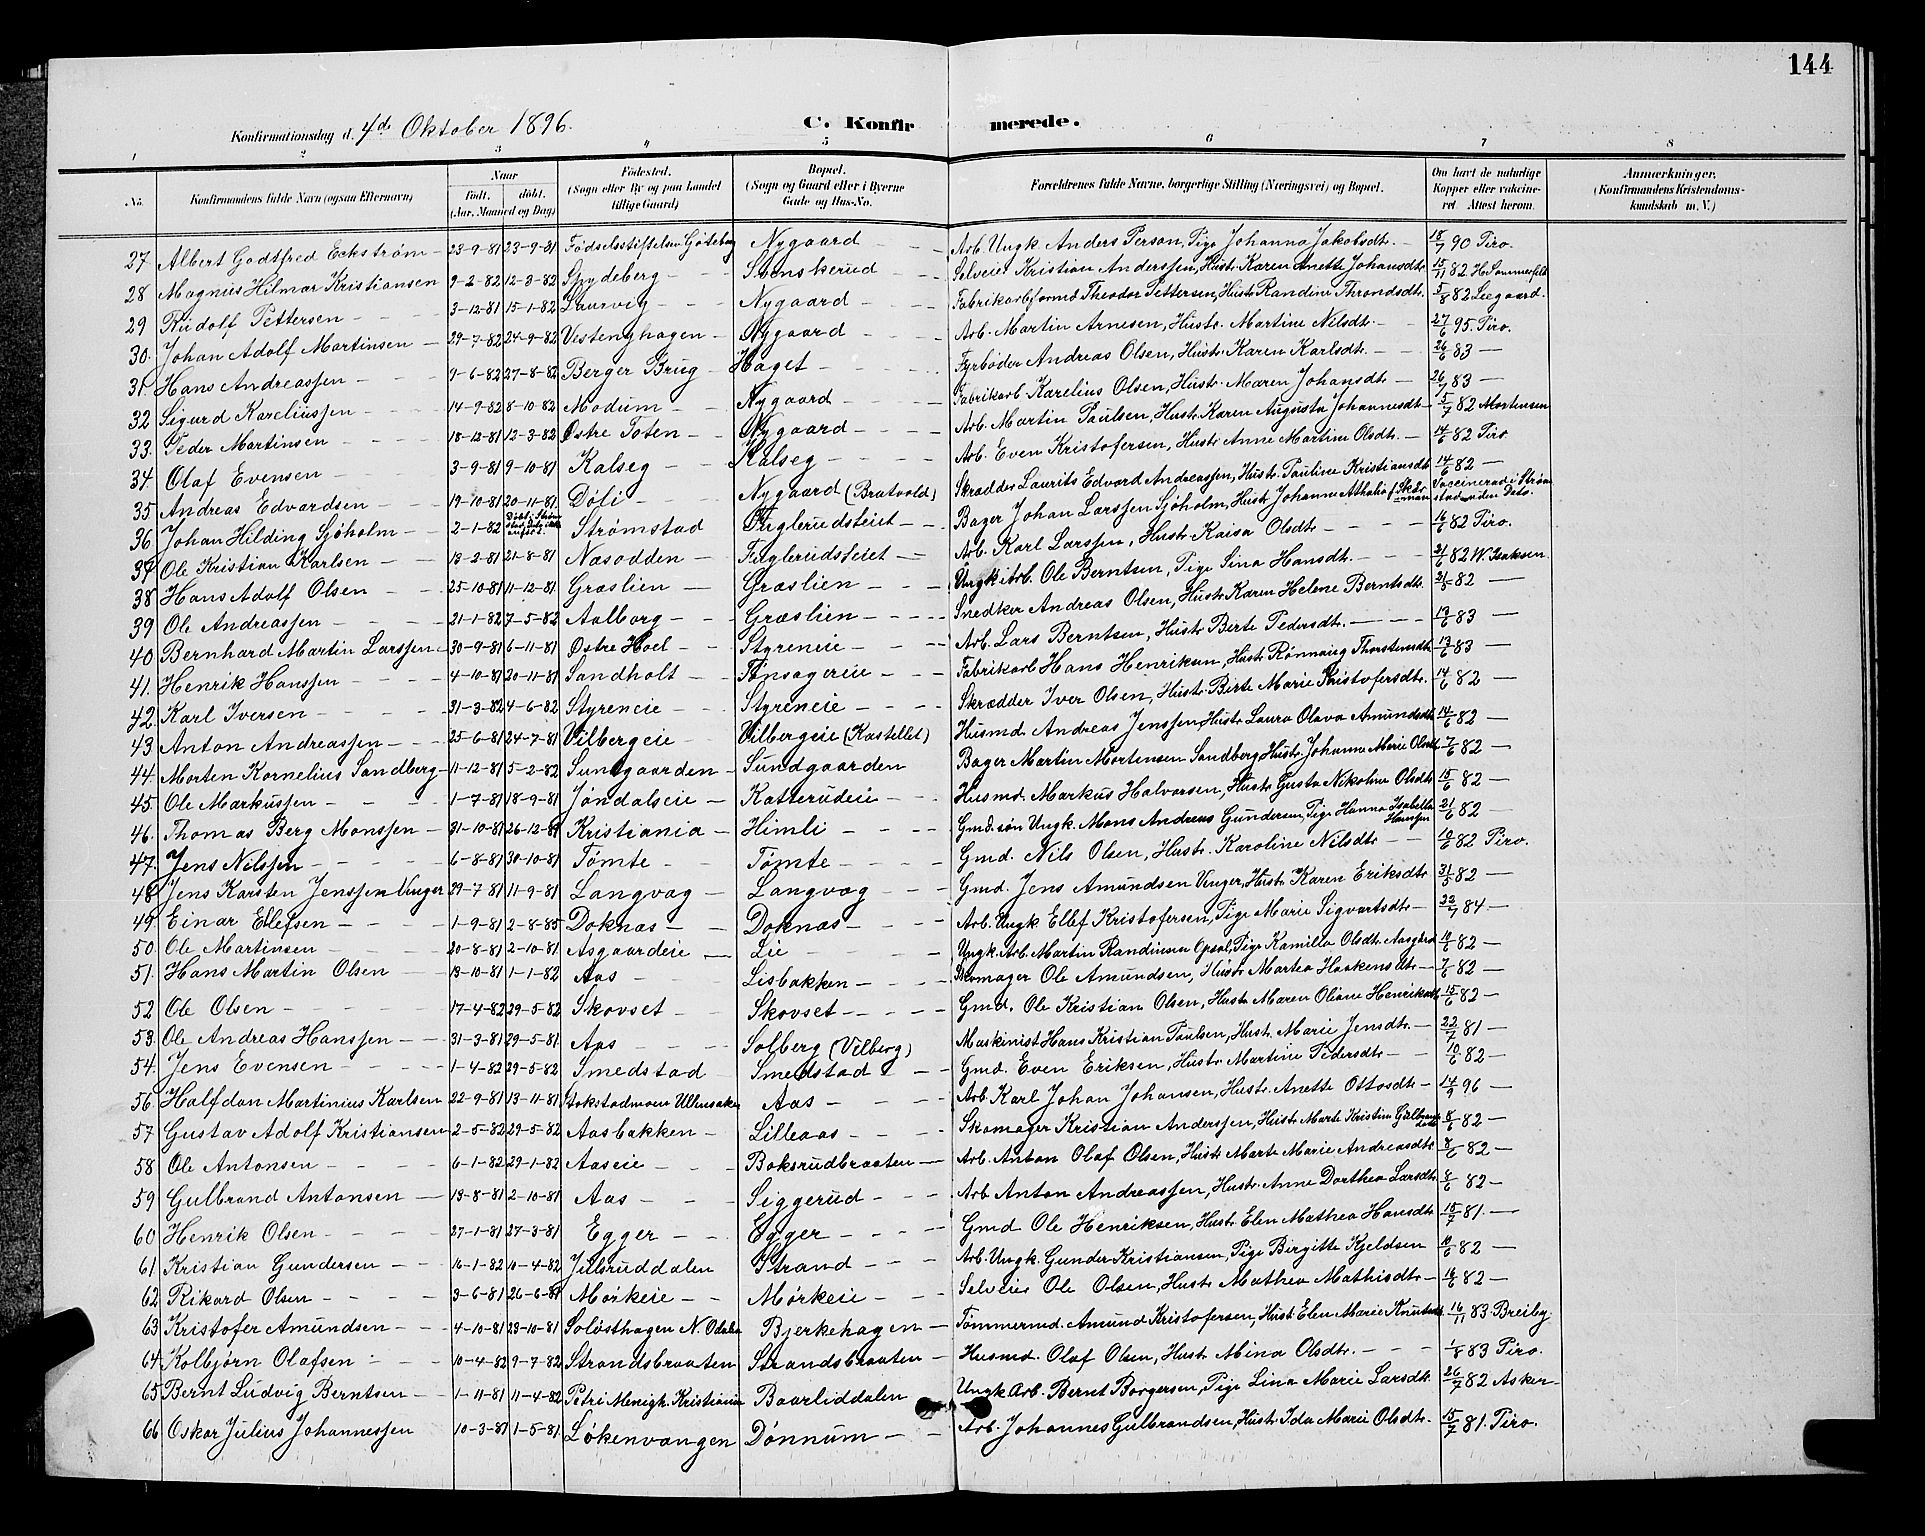 144
Konfirmationsdag d. 4de Oktober 1896. C. Konfirmerede.
1 2 3 4 5 6 7 8
No. Konfirmandens fulde Navn (ogsaa Efternavn) Naar Født. døbt. (Aar, Maaned og Dag) Fødested. (Sogn eller By og paa Landet tillige Gaard) Bopæl. (Sogn og Gaard eller i Byerne Gade og Hus-No. Forældrenes fulde Navne, borgerlige Stilling (Næringsvei) og Bopæl. Om havt de naturlige Kopper eller vaccineret. Attest herom. Anmærkninger. (Konfirmandens Kristendomskundskab m. V.)
27 Albert Godtfred Eckstrøm 23-9-81 23-9-81 Fødselsstiftelsen Gøteborg Nygaard Arb. Ungk Anders Person, Pige Johanna Jakobsdt. 18/7 90 Piro.
28 Magnus Hilmar Kristiansen 9-2-82 12-3-82 Spydeberg Svenskerud Selveier Kristian Anderssen, Hustr. Karen Anette Johansdtr 15/11 82 H. Sommerfelt
29 Rudolf Pettersen 3-12-81 15-1-82 Laurvig Nygaard Fabrikarbformd Theodor Pettersen, Hustr Randine Throndsdtr. 5/8 82 Leegaard.
30. Johan Adolf Martinsen 29-7-82 24-9-82 Vestenghagen Nygaard Arb. Martin Arnesen, Hustr. Martine Nilsdtr. 27/6 95. Piro.
31. Hans Andreassen 9-6-82 27-8-82 Berger Brug Haget Fyrbøder Andreas Olsen, Hustr Karen Karlsdtr. 26/6 83
32 Sigurd Kareliussen 14-9-82 8-10-82 Modum Nygaard Fabrikarb Karelius Olsen, Hustr. Maren Johansdtr 26/7 83
33. Peder Martinsen 18-12-81 12-3-82 Østre Toten Nygaard Arb. Martin Paulsen, Hustr. Karen Augusta Johannesdtr 5/7 82 Mortensen
34. Olaf Evensen 3-9-81 9-10-81 Kalseg Kalseg Arb. Even Kristofersen, Hustr Anne Martine Olsdtr. 14/6 82 Piro
35 Andreas Edvardsen 19-10-81 20-11-81 Døli Nygaard (Bratvold) Skrædder Laurits Edvard Andreassen, Hustr. Pauline Kristiansdt 14/6 82
36 Johan Hilding Sjøholm 2-1-82 Strømstad Fuglerudseiet Bager Johan Larssen Sjøholm, Hustr Johanne Athalia Vaccinerad i Strømstad uden Dato.
37 Ole Kristian Karlsen 13-2-81 21-8-81 Næsodden Fuglerudseiet Arb. Karl Larssen, Hustr. Kaisa Olsdtr 16/6 82 Piro.
38 Hans Adolf Olsen 25-10-81 11-12-81 Græslien Græslien Ungk. Arb. Ole Berntsen, Pige Lina Hansdt. 21/6 82 W. Isaksen
39 Ole Andreassen 21-1-82 7-5-82 Aalborg Græslien Snedker Andreas Olsen, Hustr Karen Helene Berntsdtr. 31/5 82
40 Bernhard Martin Larssen 30-9-81 6-11-81 Østre Hoel Styreneie Arb. Lars Berntsen, Hustr Berte Pedersdtr. 13/6 83
41. Henrik Hanssen 4-10-81 20-11-81 Sandholt Tønsagereie Fabrikarb Hans Henriksen, Hustr Rønnaug Thorstensdt 13/6 83
42. Karl Iversen 31-3-82 4-6-82 Styreneie Styreneie Skrædder Iver Olsen, Hustr. Birte Marie Kristofersdtr. 14/6 82
43 Anton Andreassen 25-6-81 24-7-81 Vilbergeie Vilbergeie (Kastellet) Husmd. Andreas Jenssen, Hustr Laura Olava Amundsdt 14/6 82
44. Morten Kornelius Sandberg 11-12-81 5-2-82 Sundgaarden Sundgaarden Bager Martin Mortensen Sandberg, Hustr. Johanne Marie Olsdt 7/6 82
45. Ole Markussen 1-7-81 18-9-81 Jøndalseie Katterudeie Husmd. Markus Halvorsen, Hustr Gusta Nikoline Olsdtr. 15/6 82
46. Thomas Berg Monssen 31-10-81 26-12-81 Kristiania Himli Gmd. søn Ungk. Mons Andreas Gundersen, Pige Hanna Isabella Hanssen 21/6 82
47. Jens Nilssen 6-8-81 30-10-81 Tømte Tømte Gmd. Nils Olsen, Hustr. Karoline Nilsdtr 10/6 82 Piro.
48. Jens Karsten Jenssen Unger 29-7-81 11-9-81 Langvag Langvag Gmd. Jens Amundsen Unger, Hustr Karen Eriksdtr 31/5 82
49. Einar Ellefsen 1-9-81 2-8-85 Doknæs Doknæs Arb. Ungk Ellef Kristofersen, Pige Marie Sigvartsdtr 22/7 84
50. Ole Martinsen 20-8-81 2-10-81 Asgaardeie Lie Ungk. Arb. Martin Randinius Opsal, Pige Kamilla Olsdtr. Aasgard 10/6 82
51. Hans Martin Olsen 13-10-81 1-1-82 Aas Lisbakken Skomager Ole Amundsen, Hustr Marthea Haakensdtr 7/6 82
52 Ole Olsen 17-4-82 29-5-82 Skovset Skovset Gmd. Ole Kristian Olsen, Hustr Maren Oliane Henriksdt 15/6 82
53. Ole Andreas Hanssen 31-3-81 29-5-81 Aas Solberg (Vilberg) Maskinist Hans Kristian Paulsen, Hustr. Marie Jensdtr. 22/7 81
54. Jens Evensen 1-4-82 29-5-82 Smedstad Smedstad Gmd. Even Eriksen, Hustr. Martine Pedersdtr 10/6 82
56. Halfdan Martinius Karlsen 22-9-81 13-11-81 Jokstadmoen Ullensaker Aas Arb Karl Johan Johansen, Hustr. Anette Ottosdtr 14/9 96
57 Gustav Adolf Kristiansen 2-5-82 29-5-82 Aasbakken Lilleaas Skomager Kristian Anderssen, Hustr Marte Kristine Gulbrandsdt 8/6 82
58 Ole Antonsen 6-1-82 29-1-82 Aaseie Boksrudbraaten Arb. Anton Olaf Olsen, Hustr Marte Marie Andreasdtr. 8/6 82
59 Gulbrand Antonsen 13-8-81 2-10-81 Aas Siggerud Arb Anton Andreassen, Hustr. Anne Dorthea Larsdtr. 8/6 82
60 Henrik Olsen 27-1-81 27-3-81 Egger Egger Gmd Ole Henriksen, Hustr Elen Mathea Hansdtr 15/7 81
61 Kristian Gundersen 16-1-82 10-4-82 Julsruddalen Strand Arb. Ungk. Gunder Kristiansen, Pige Birgitte Kjeldsen 10/6 82
62 Rikard Olsen 3-6-81 26-6-81 Mørkeie Mørkeie Selveier Ole Olsen, Hustr Mathea Mathisdtr 16/6 82
63 Kristofer Amundsen 4-10-81 23-10-81 Soløsthagen N. Odalen Bjerkehagen Tømmermd. Amund Kristofersen, Hust Elen Marie Knutsdt 16/11 83 Breiby
64 Kolbjørn Olafsen 10-4-82 9-7-82 Strandsbraaten Strandsbraaten Husmd. Olaf Olsen, Hustr Mina Olsdtr. 1/8 83 Piro.
65 Bernt Ludvig Berntsen 1-11-81 11-4-82 Petri Menigh. Kristiania Baarliddalen Ungk Arb. Bernt Borgersen, Pige Lina Marie Larsdt. 26/7 82 Asker
66 Oskar Julius Johannessen 10-3-81 1-5-81 Løkenvangen Dønnum Arb. Johannes Gulbrandsen, Hustr Ida Marie Olsdtr. 15/7 81. Piro.